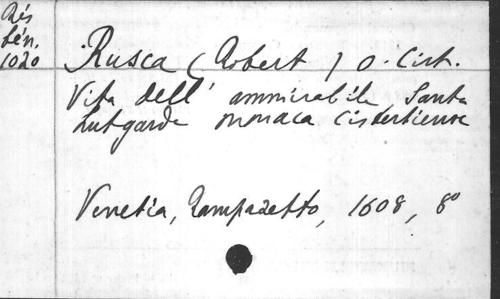 Rés
bén.
1020
Rusca (Robert) O. Cist.
Vita dell' ammirabile Santa
Lutgarde monaca Cisterciense
Venetia, Rampazetto, 1608, 8°